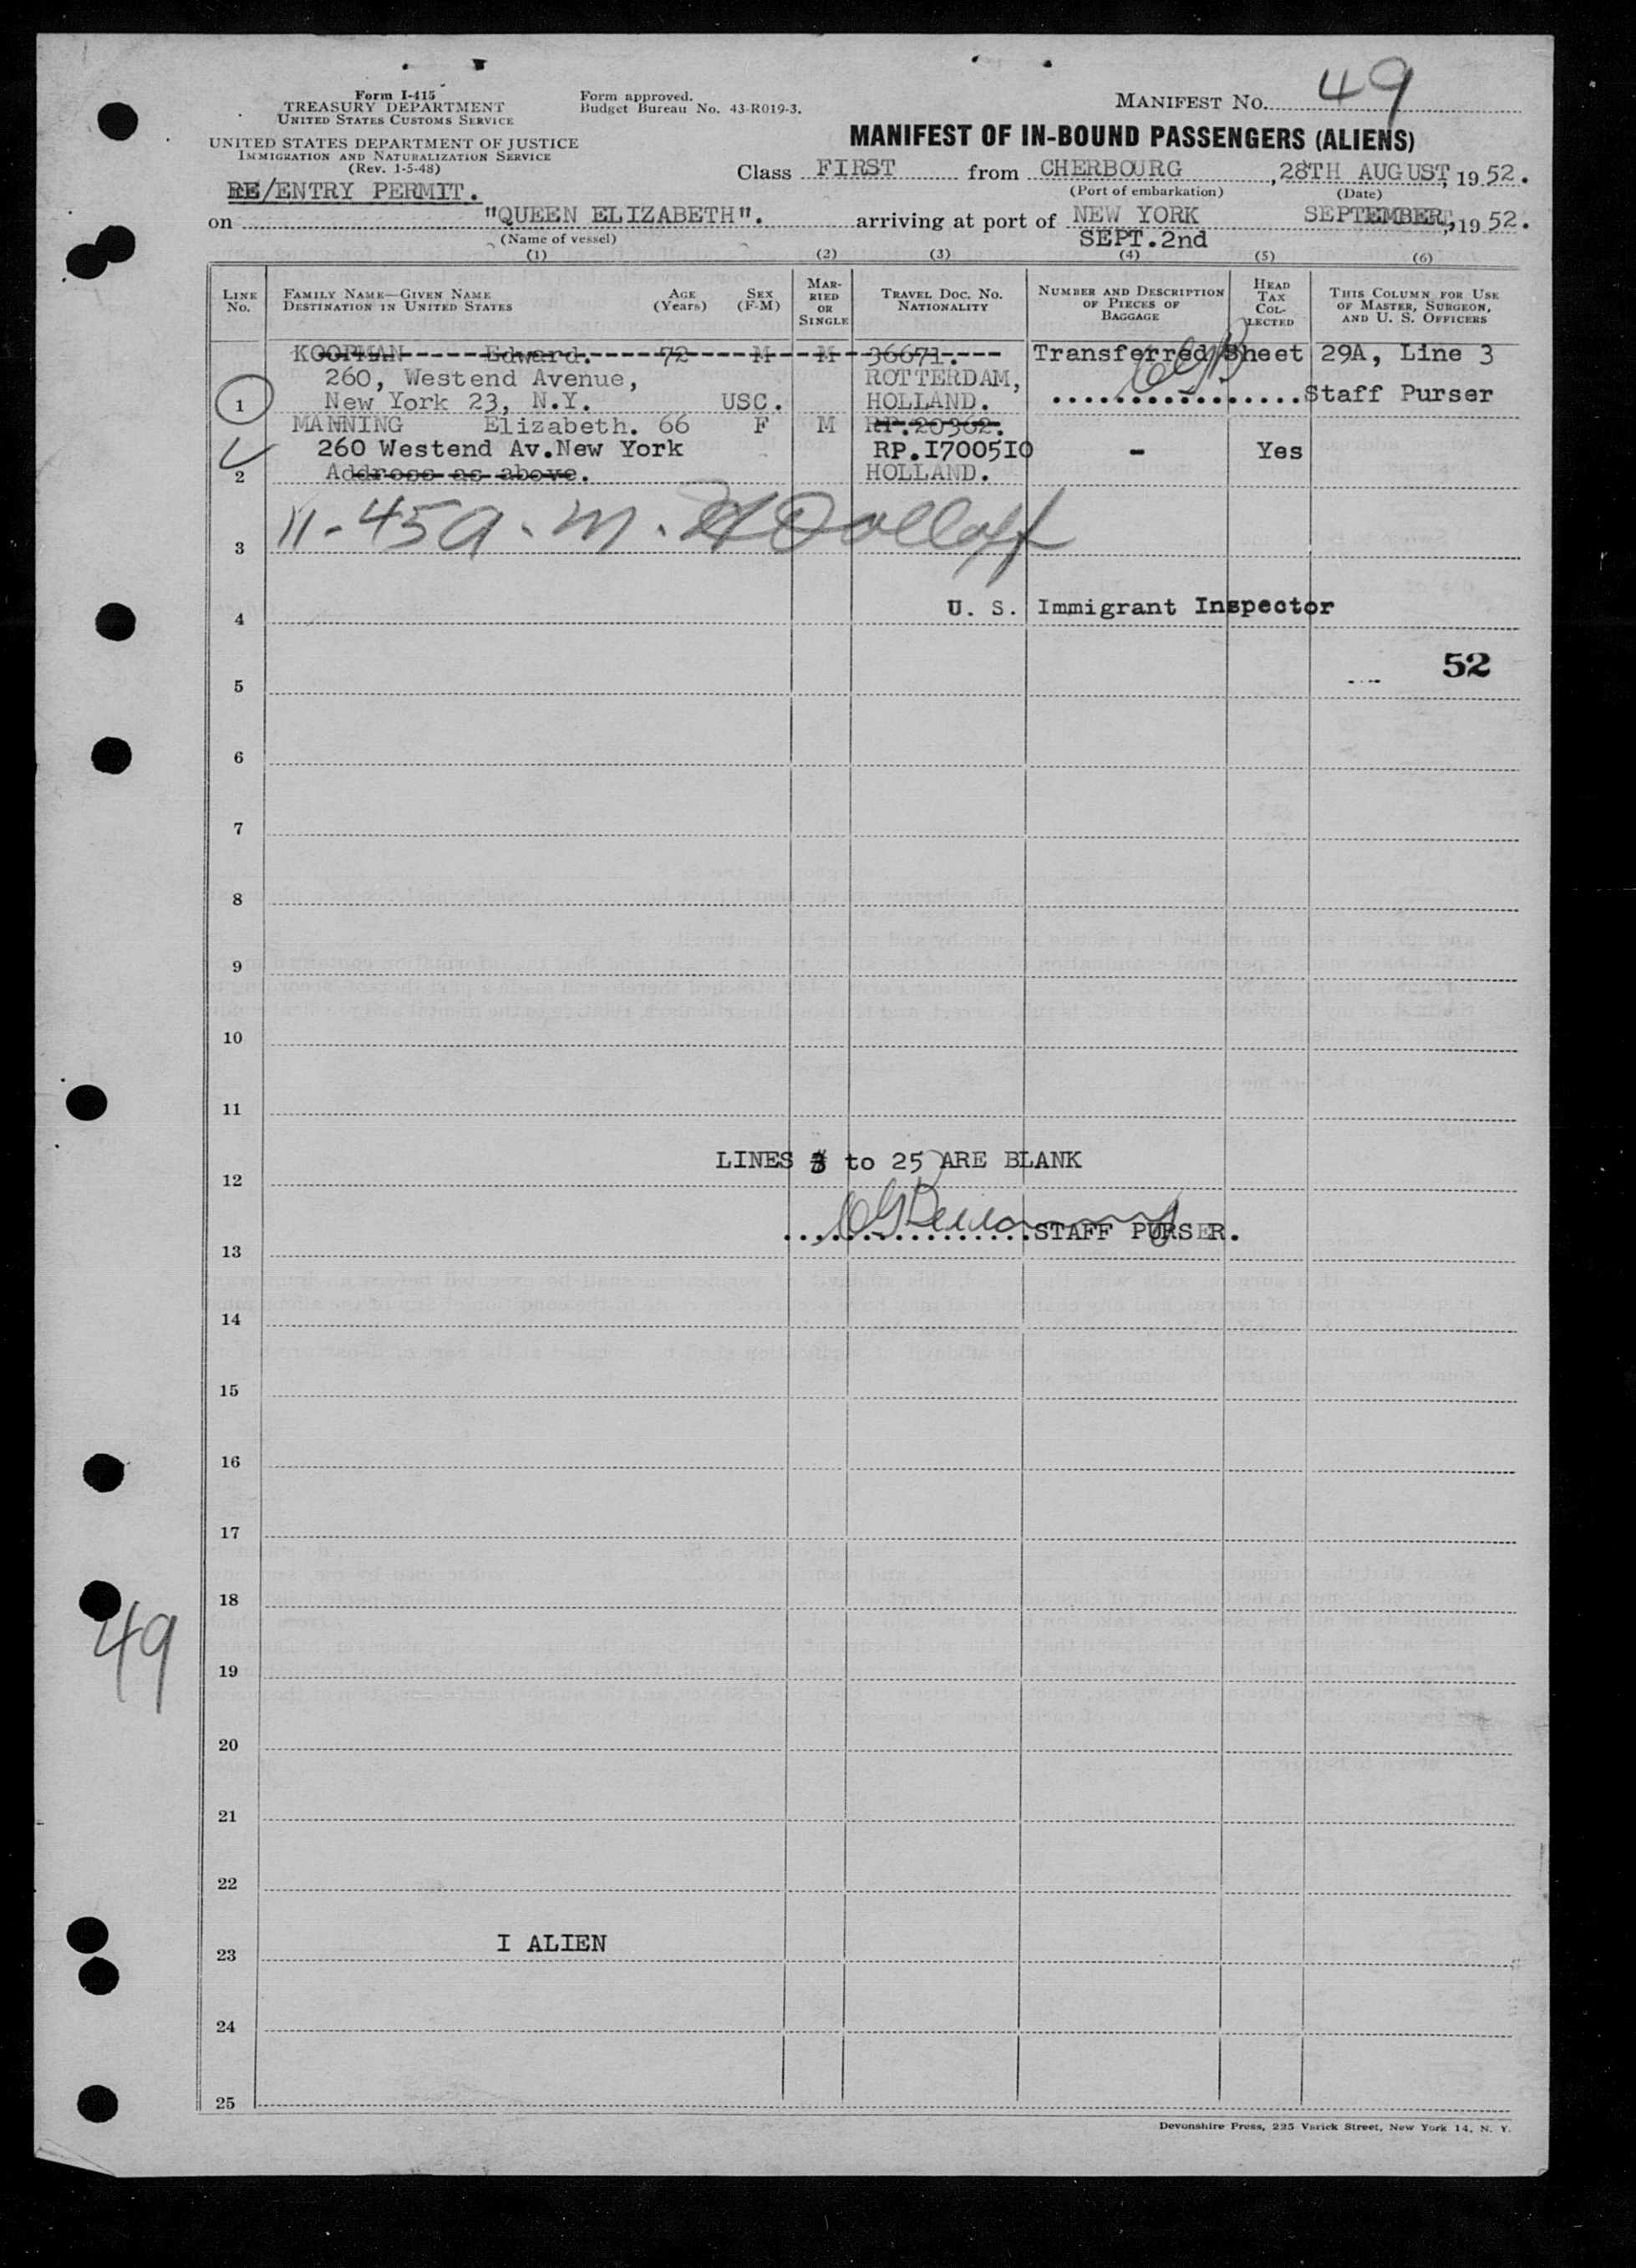 Form I-415
TREASURY DEPARTMENT
UNITED STATES CUSTOMS SERVICE
UNITED STATES DEPARTMENT OF JUSTICE
IMMIGRATION AND NATURALIZATION SERVICE
(Rev. 1-5-48)
RE/ENTRY PERMIT.
Form approved.
Budget Bureau No. 43-R019-3.
MANIFEST NO. 49
MANIFEST OF IN-BOUND PASSENGERS (ALIENS)
Class FIRST from CHERBOURG, 28TH AUGUST, 1952.
(Port of embarkation) (Date)
on "QUEEN ELIZABETH". arriving at port of NEW YORK SEPTEMBER, 1952.
(Name of vessel) SEPT.2nd
(1) (2) (3) (4) (5) (6)
LINE NO.
FAMILY NAME—GIVEN NAME
DESTINATION IN UNITED STATES
AGE (Years)
SEX (F-M)
MARRIED OR SINGLE
TRAVEL DOC. NO.
NATIONALITY
NUMBER AND DESCRIPTION OF PIECES OF BAGGAGE
HEAD TAX COLLECTED
THIS COLUMN FOR USE OF MASTER, SURGEON, AND U. S. OFFICERS
KOOPMAN Edward. 72 M M 36671. Transferred Sheet 29A, Line 3
260, Westend Avenue, ROTTERDAM,
1 New York 23, N.Y. USC. HOLLAND. ................Staff Purser
MANNING Elizabeth. 66 F M RP.20362.
260 Westend Av.New York RP.I7005I0 - Yes
2 Address as above. HOLLAND.
11-45 a.m.
3
U. S. Immigrant Inspector
4
52
5
6
7
8
9
10
11
LINES 3 to 25 ARE BLANK
12
................STAFF PURSER.
13
14
15
16
17
18
49
19
20
21
22
I ALIEN
23
24
25
Devonshire Press, 225 Varick Street, New York 14, N. Y.